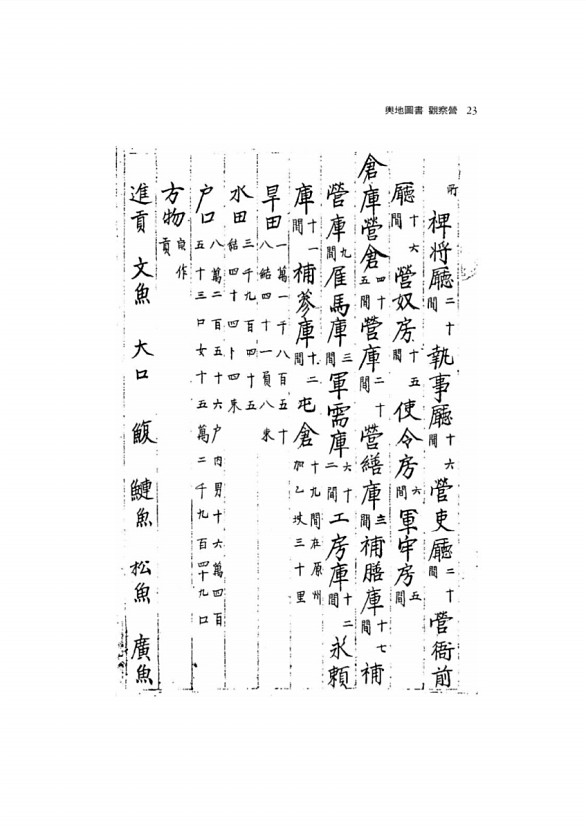 輿地圖書 觀察營 23
所 裨将廳二十間 執事廳十六間 營吏廳二十間 營衙前
廳十六間 營奴房十五間 使令房六間 軍牢房五間
倉庫營倉四十五間 營庫二十間 營繕庫三間 補膳庫十七間 補
營庫九間 雁馬庫三間 軍需庫六十二間 工房庫十二間 永賴
庫十一間 補蔘庫十二間 屯倉十九間在原州加乙坡三十里
旱田一萬一千八百五十八結四十一負八束
水田三千九百四十五結四十四卜四束
户口八萬二百五十六户内男十六萬四百五十三口女十五萬二千九百四十九口
方物貢
進貢 文魚 大口 鰒 鰱魚 松魚 廣魚